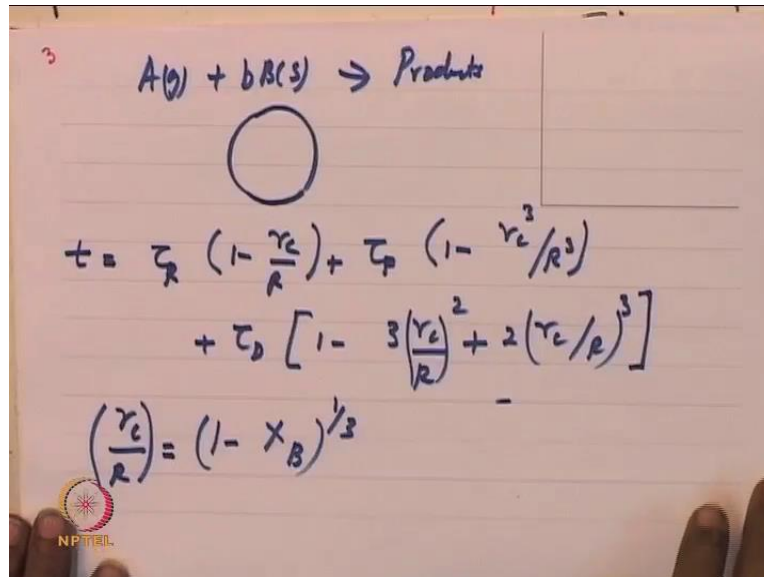 3
A(g) + bB(s) → Products
t = τ_R (1 - r_c/R) + τ_F (1 - r_c^3/R^3)
+ τ_D [1 - 3(r_c/R)^2 + 2(r_c/R)^3]
(r_c/R) = (1 - X_B)^1/3
NPTEL